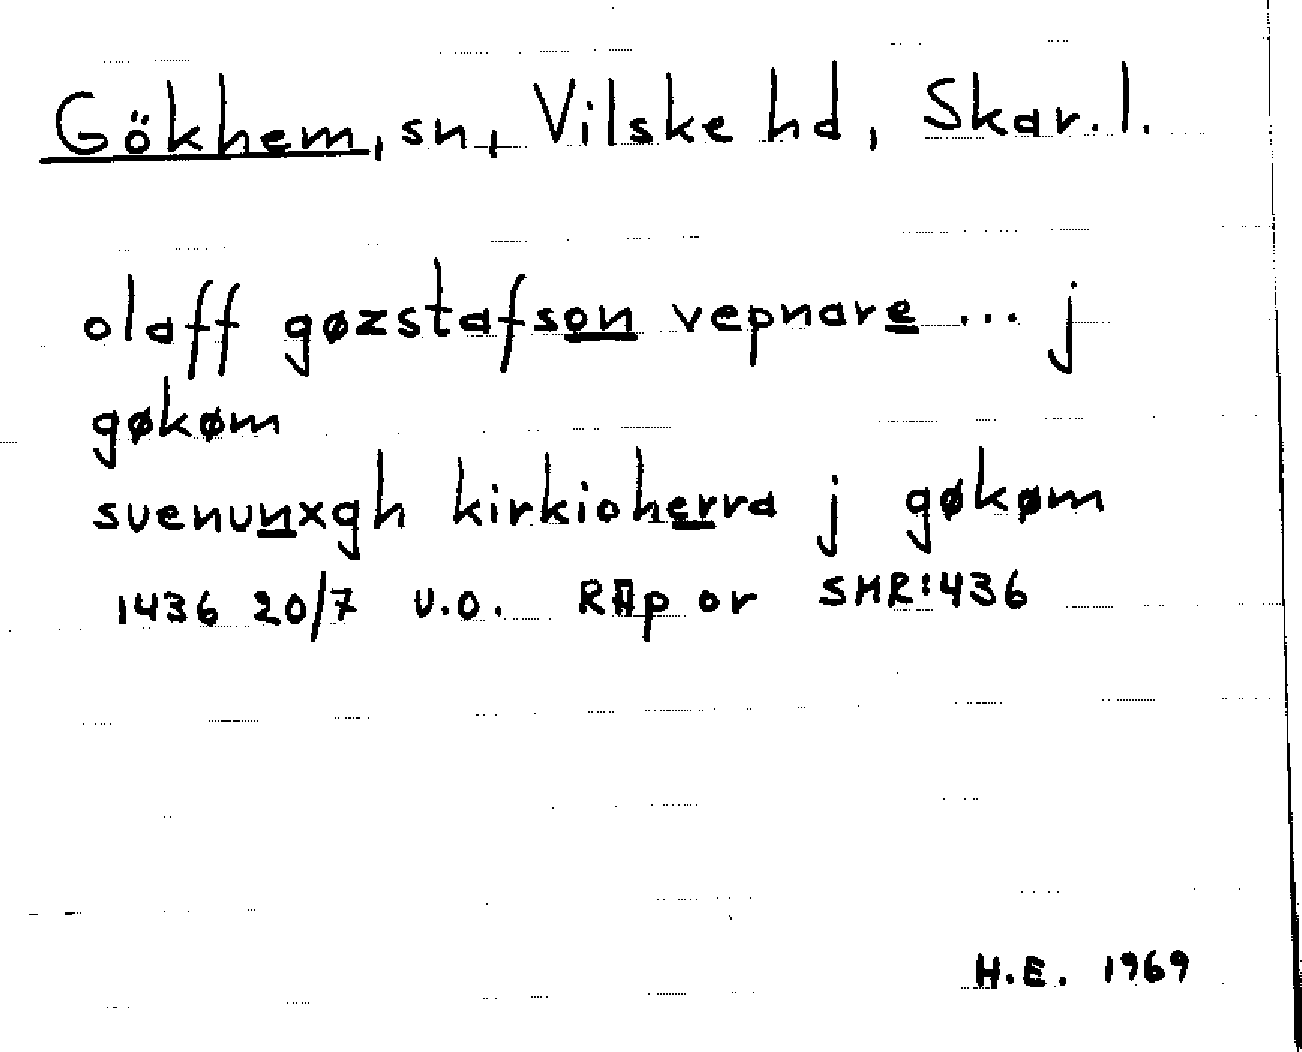 Gökhem, sn, Vilske hd, Skar. l.
olaff gøzstafson vepnare ... j
gøkøm
suenunxgh kirkioherra j gøkøm
1436 20/7 u.o. RAp or SMR:436
H.E. 1969